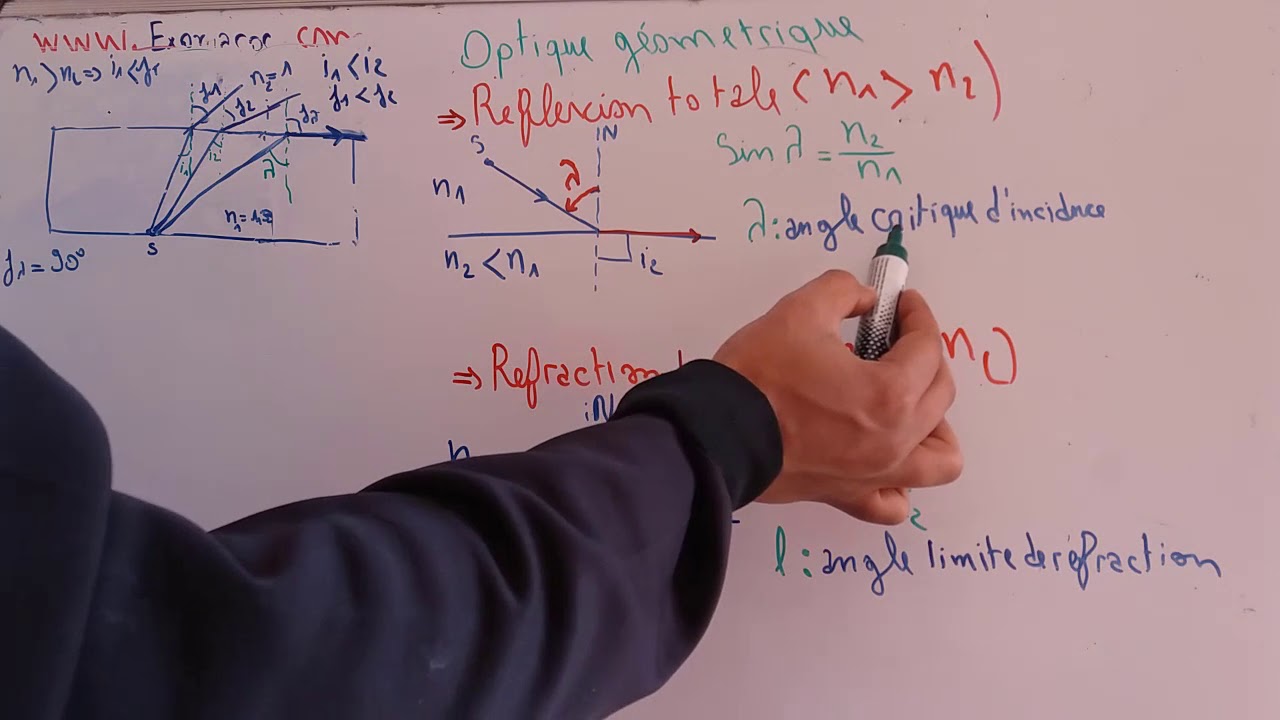 www. Exoriaroc com
n₁ > n₂ ⇒ i₁ < f₁
n₂ = 1
i₁ < i₂
f₁ < f₂
f1
f2
fλ
i1
i2
λ
S
fλ = 90°
Optique géometrique
⇒ Reflexcion totale ( n₁ > n₂ )
S
iN
λ
n₁
n₂ < n₁
i₂
Sin λ = n₂ / n₁
λ : angle critique d'incidence
⇒ Refraction
iN
n
2
l : angle limite de réfraction